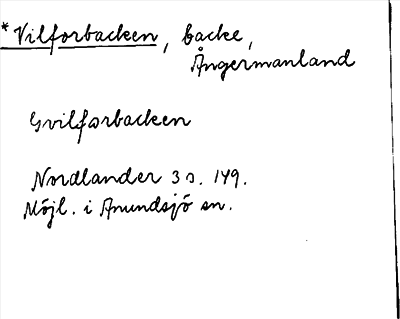 *Vilforbacken, backe,
Ångermanland
Gvilforbacken
Nordlander 3 s. 149.
Möjl. i Anundsjö sn.